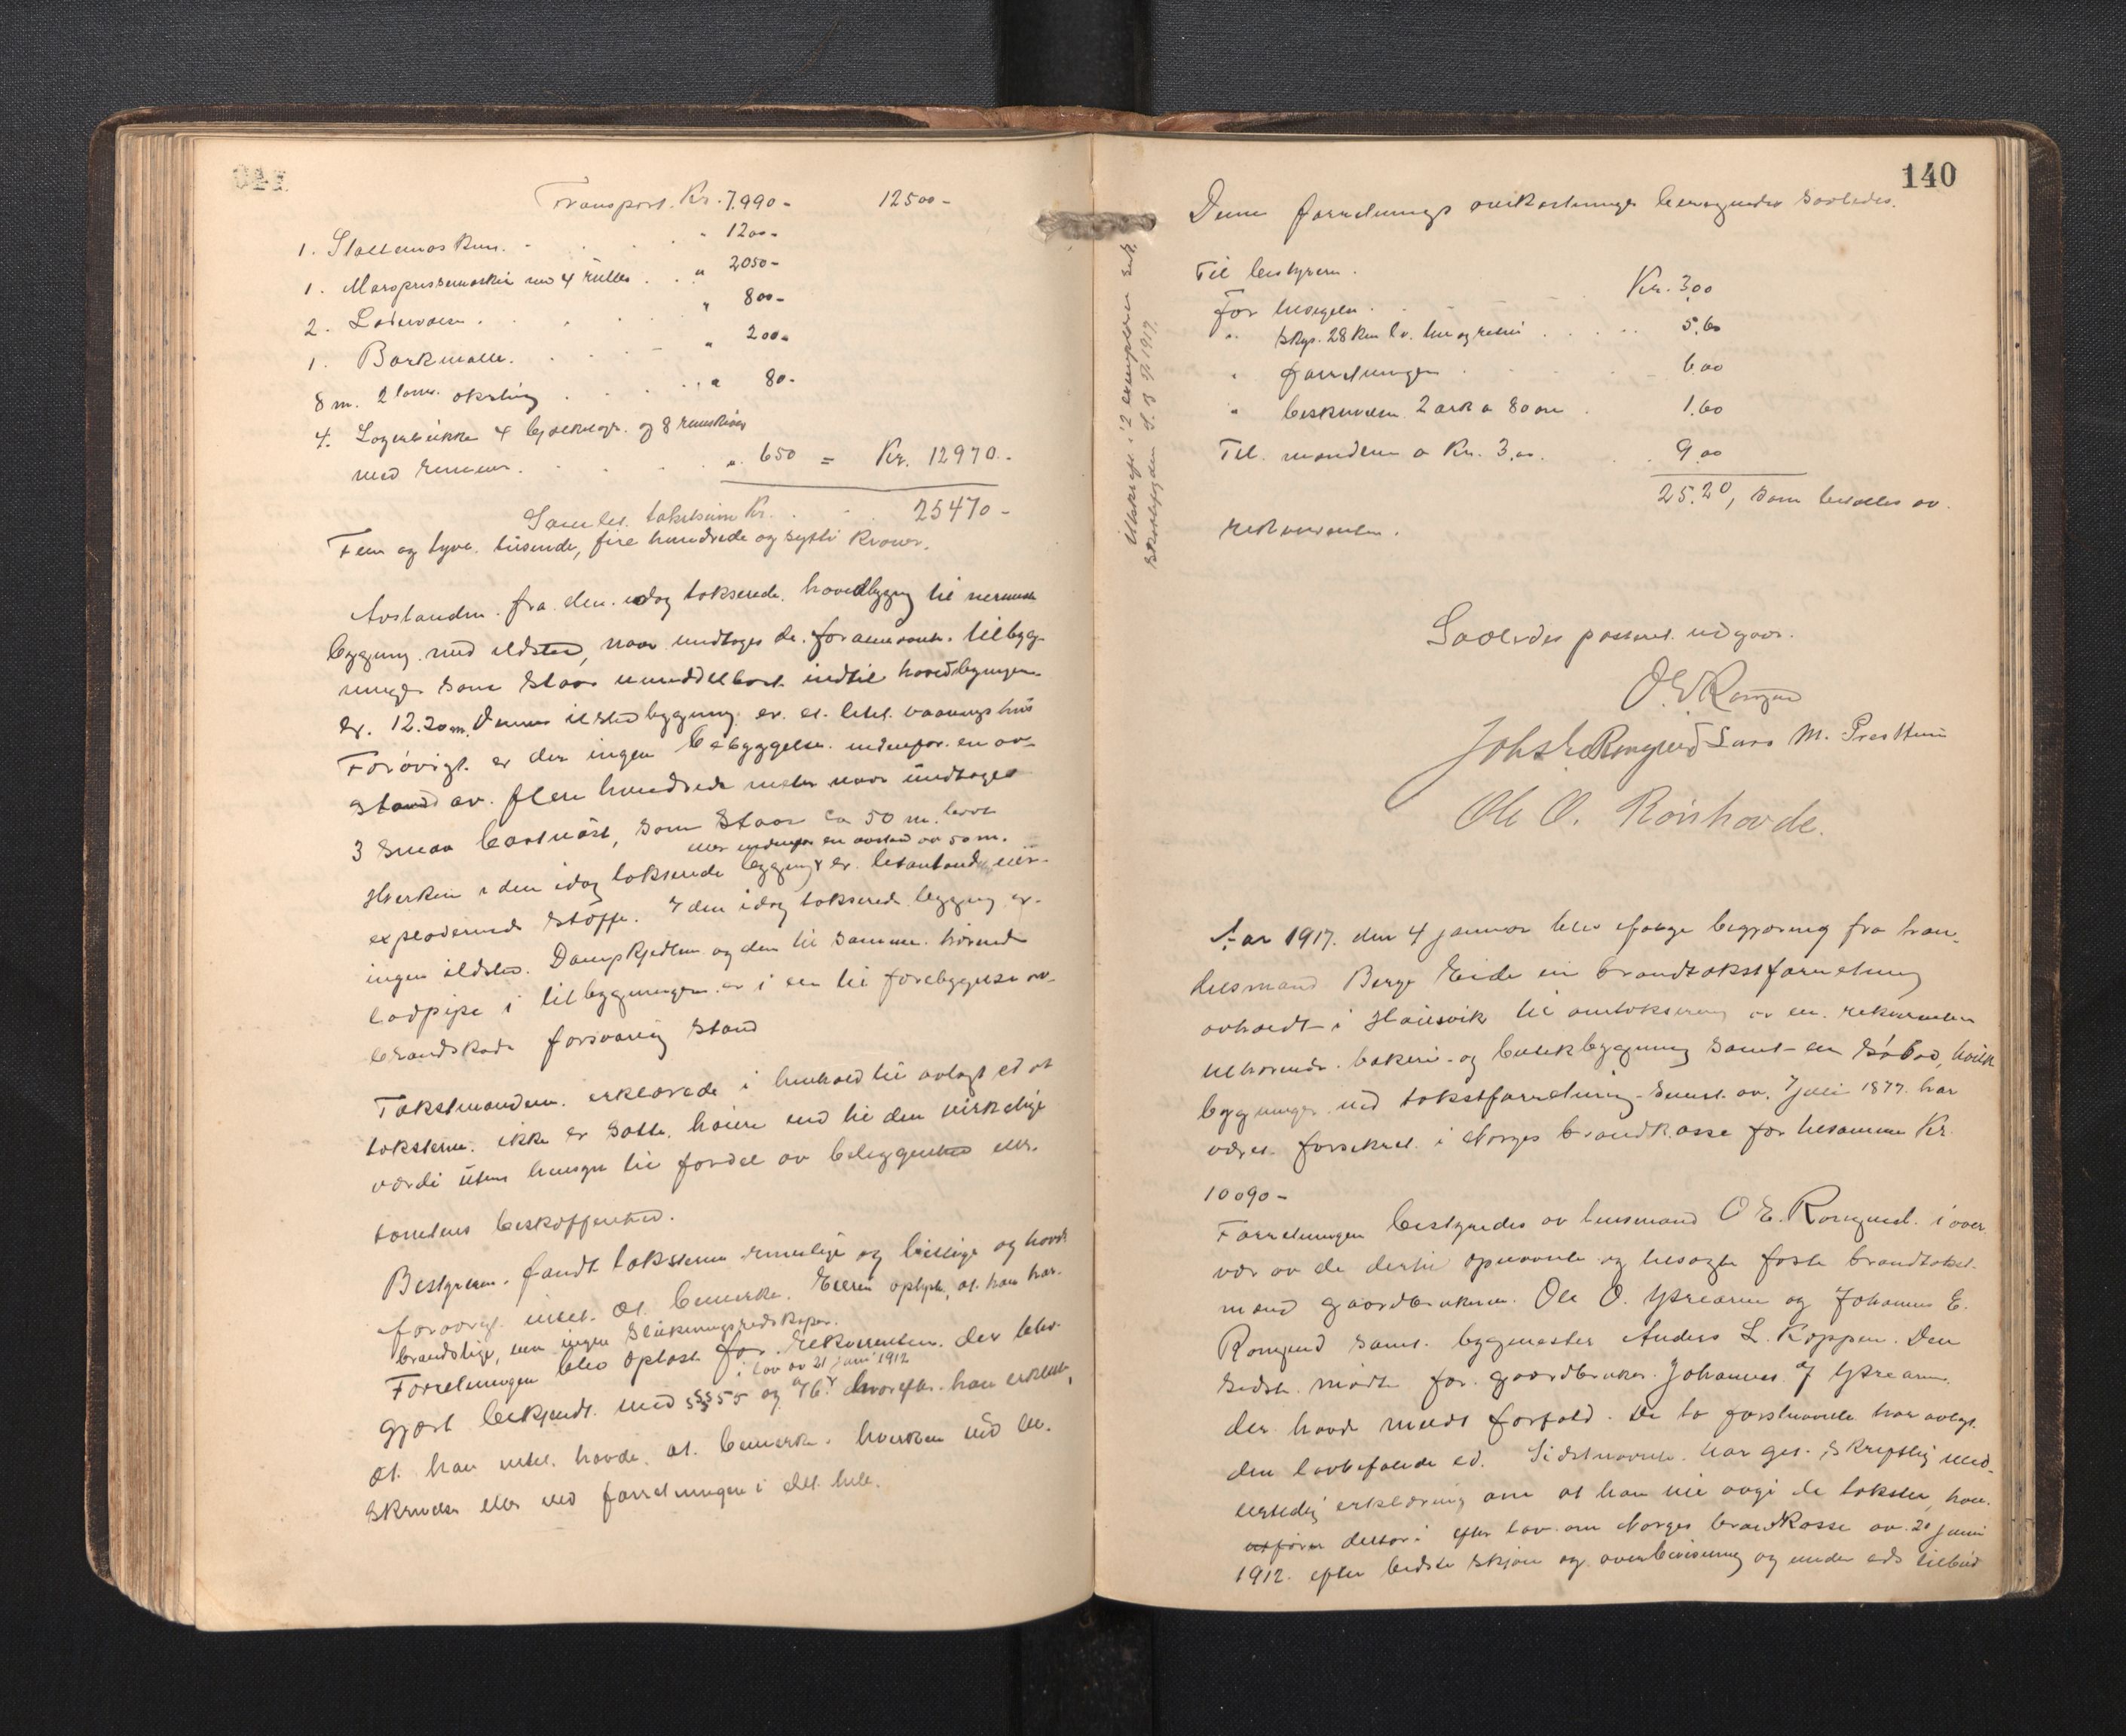 Transport. Kr. 7.990- 12500-
1. Stollemaskin. " 1200-
1. Margpressemaskin med 4 ruller " 2050-
2. " 800-
1. Barkmølle. " 200-
8 m. 2 tom. oksling " 80-
4. Lagerbukke 4 og 8 remskiver
med remmer. " 650 = Kr. 12970.-
Samlet. takstsum Kr. 25470-
Fem og tyve tusende, fire hundrede og sytti Kroner.
Avstanden fra den idag takserede hovedbygng til nærmeste
bygging med ildsted, naar undtages de foranævnte tilbyg-
ninger som staar umiddelbart indtil hovedbygingen
er. 12.20 m. Denne ildstedbygging er et litet vaaningshus
Forøvrigt er der ingen bebyggelse indenfor en av-
stand av flere hundrede meter naar undtages
3 smaa baatnøst, som staar ca 50 m. borte
eller indenfor en avstand av 50 m.
Hverken i den idag takserede bygging er let antændelige eller
exploderende stoffe. I den idag takserede bygging er
ingen ildsted. Dampkjedlen og den til samme hørende
lodpipe i tilbyggningen er i en til forebyggelse av
brandskade forsvarlig stand
Takstmændene erklærede i henhold til avlagt ed at
taksterne ikke er satte høiere end til den virkelige
værdi uten hensyn til fordel av beliggenhed eller
tomtens beskaffenhed.
Bestyreren fandt taksterne rimelige og billige og havde
forøvrigt intet at bemerke. Eieren oplyste, at han har
brandstige, men ingen slukningsredskaper.
Forretningen blev oplæst for rekvirenten der blev
i lov av 21 juni 1912
gjort bekjendt med §§ 55 og 76, hvorefter han erklærte,
at han intet havde at bemerke hverken ved be-
skrivelse eller ved forretningen i det hele.
140
Denne forretnings omkostninger beregnedes saaledes.
Til bestyreren.
For besigelse Kr. 3,00
" skys. 28 km lv. tur og retur 5.60
" forretningen 6.00
" beskrivelsen 2 ark a 80 øre 1.60
Til mændene a Kr. 3,00. 9.00
25.20, som betales av
rekvirenten.
Utskrift i 2 exemplarer
1917
Saaledes passeret utgaar.
O. E. Romgud
Johs E Romgued Lars M. Presttun
Ole O. Roishovde.
Aar 1917. den 4 januar blev ifølge begjæring fra han-
delsmand Berge Eide en brandtakstforretning
avholdt i Hausvik til omtaksering av en rekvirenten
tilhørende bakeri- og butikbygning samt en sjøbod, hvilke
bygninger ved takstforretning senest av 7 juli 1877 har
været forsikret i Norges brandkasse for tilsammen Kr.
10090-
Forretningen bestyredes av lensmand O E. Romgued i over-
vær av de dertil opnævnte og besagte faste brandtakst-
mænd gaardbrukerne Ole O. Ytrearne og Johannes E.
Romgued samt bygmester Anders L. Koppen. Den
sidste møtte for gaardbruker Johannes J Ytrearne
der havde meldt forfald. De to førstnævnte har avlagt
den lovbefalede ed. Sidstnævnte har git skriftlig
erklæring om at han vil avgi de takster, han
utfører dertor i efter lov om Norges brandkasse av 21 juni
1912. efter bedste skjøn og overbevisning og under eds tilbud